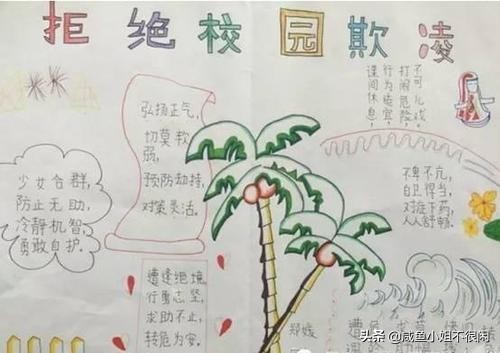 拒绝校园欺凌
弘扬正气,
切莫软
弱,
预防劫持,
对策灵活。
少女合群,
防止无助,
冷静机智,
勇敢自护。
课间休息,
行为适宜,
打闹危险,
不可儿戏。
不卑不亢,
自卫得当,
对症下药,
人人舒畅。
遭逢绝境,
行勇志坚,
求助不止,
转危为安。
头条 @咸鱼小姐不很闲